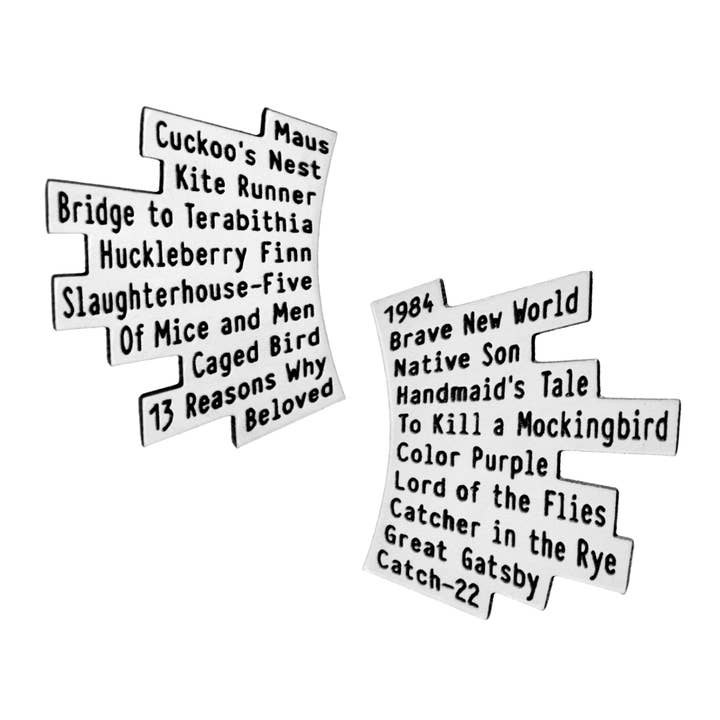 Maus
Cuckoo's Nest
Kite Runner
Bridge to Terabithia
Huckleberry Finn
Slaughterhouse-Five
Of Mice and Men
Caged Bird
13 Reasons Why
Beloved
1984
Brave New World
Native Son
Handmaid's Tale
To Kill a Mockingbird
Color Purple
Lord of the Flies
Catcher in the Rye
Great Gatsby
Catch-22